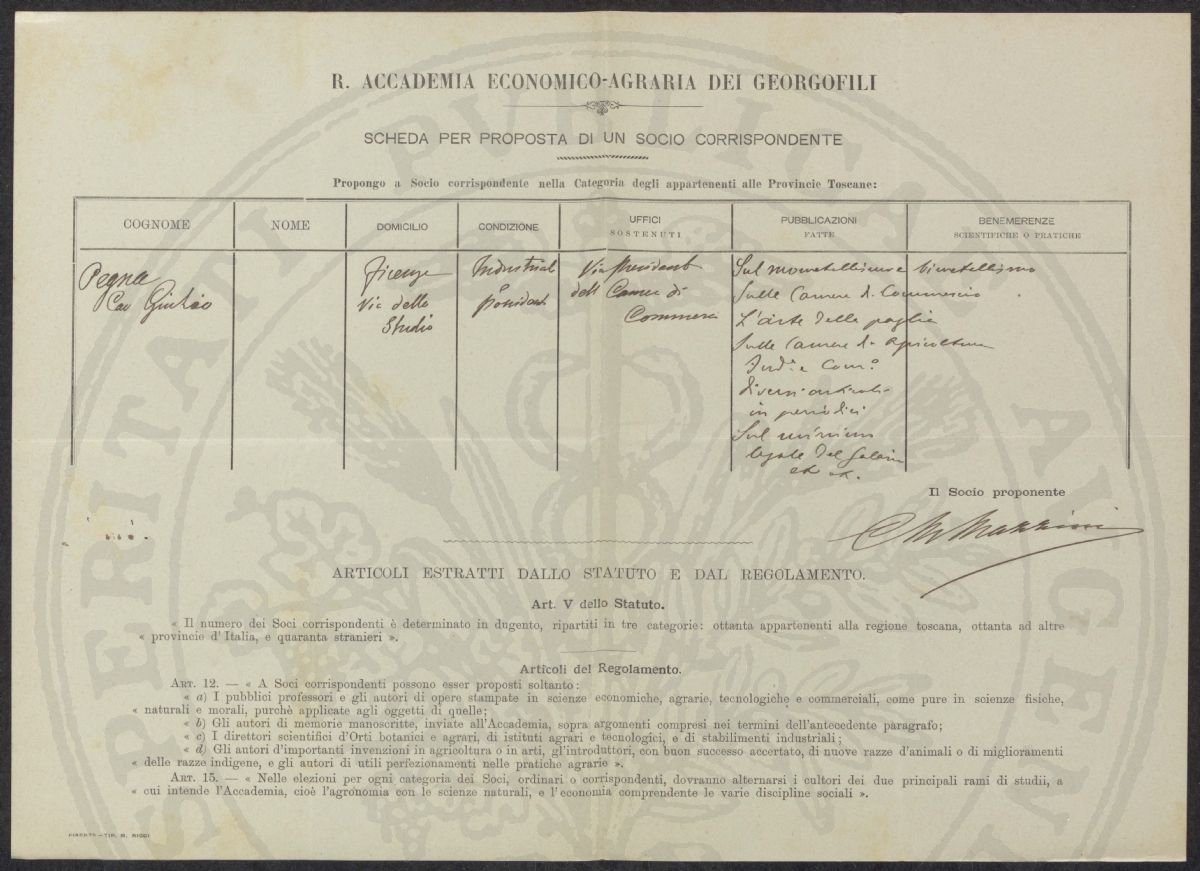 R. ACCADEMIA ECONOMICO-AGRARIA DEI GEORGOFILI
SCHEDA PER PROPOSTA DI UN SOCIO CORRISPONDENTE
Propongo a Socio corrispondente nella Categoria degli appartenenti alle Provincie Toscane:
COGNOME NOME DOMICILIO CONDIZIONE UFFICI SOSTENUTI PUBBLICAZIONI FATTE BENEMERENZE SCIENTIFICHE O PRATICHE
Pegna
Cav Giulio
Firenze
Via dello
Studio
Industrial
e
possident
Vice President
dell Camera di
Commerci
Sul monetellismo e bimetellismo
Sulle Camere di Commercio
L'arte della paglia
Sulle Camere di agricoltura
Ind.e e Com.o
diversi articoli
in periodici
Sul minimo
legale del Salario
Il Socio proponente
ARTICOLI ESTRATTI DALLO STATUTO E DAL REGOLAMENTO.
Art. V dello Statuto.
« Il numero dei Soci corrispondenti è determinato in dugento, ripartiti in tre categorie: ottanta appartenenti alla regione toscana, ottanta ad altre
« provincie d' Italia, e quaranta stranieri ».
Articoli del Regolamento.
ART. 12. — « A Soci corrispondenti possono esser proposti soltanto:
« a) I pubblici professori e gli autori di opere stampate in scienze economiche, agrarie, tecnologiche e commerciali, come pure in scienze fisiche,
« naturali e morali, purchè applicate agli oggetti di quelle;
« b) Gli autori di memorie manoscritte, inviate all'Accademia, sopra argomenti compresi nei termini dell'antecedente paragrafo;
« c) I direttori scientifici d'Orti botanici e agrari, di istituti agrari e tecnologici, e di stabilimenti industriali;
« d) Gli autori d'importanti invenzioni in agricoltura o in arti, gl'introduttori, con buon successo accertato, di nuove razze d'animali o di miglioramenti
« delle razze indigene, e gli autori di utili perfezionamenti nelle pratiche agrarie ».
ART. 15. — « Nelle elezioni per ogni categoria dei Soci, ordinari o corrispondenti, dovranno alternarsi i cultori dei due principali rami di studii, a
« cui intende l'Accademia, cioè l'agronomia con le scienze naturali, e l'economia comprendente le varie discipline sociali ».
FIRENZE – TIP. M. RICCI